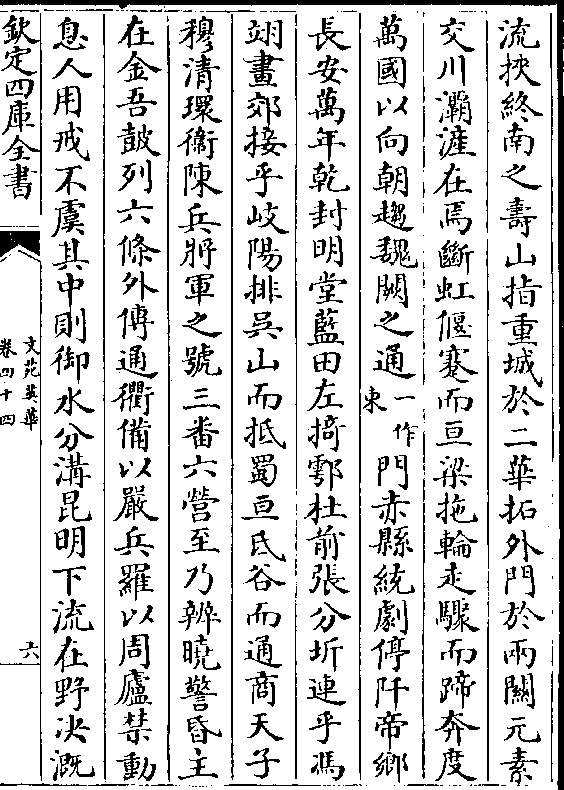 流抰終南之壽山指重城於二華拓外門於兩關元素
交川灞滻在焉斷虹偃蹇而亘梁拖輪走驟而蹄奔度
萬國以向朝趨魏闕之通一作東門赤縣統劇停阡帝鄉
長安萬年乾封明堂藍田左掎鄠杜前張分圻連乎馮
翊畫郊接乎岐陽排吳山而抵蜀亘氐谷而通商天子
穆清環衞陳兵將軍之號三番六營至乃辨曉警昏主
在金吾鼓列六條外傳通衢備以嚴兵羅以周廬禁動
息人用戒不虞其中則御水分溝昆明下流在野決溉
欽定四庫全書
文苑英華
卷四十四
六